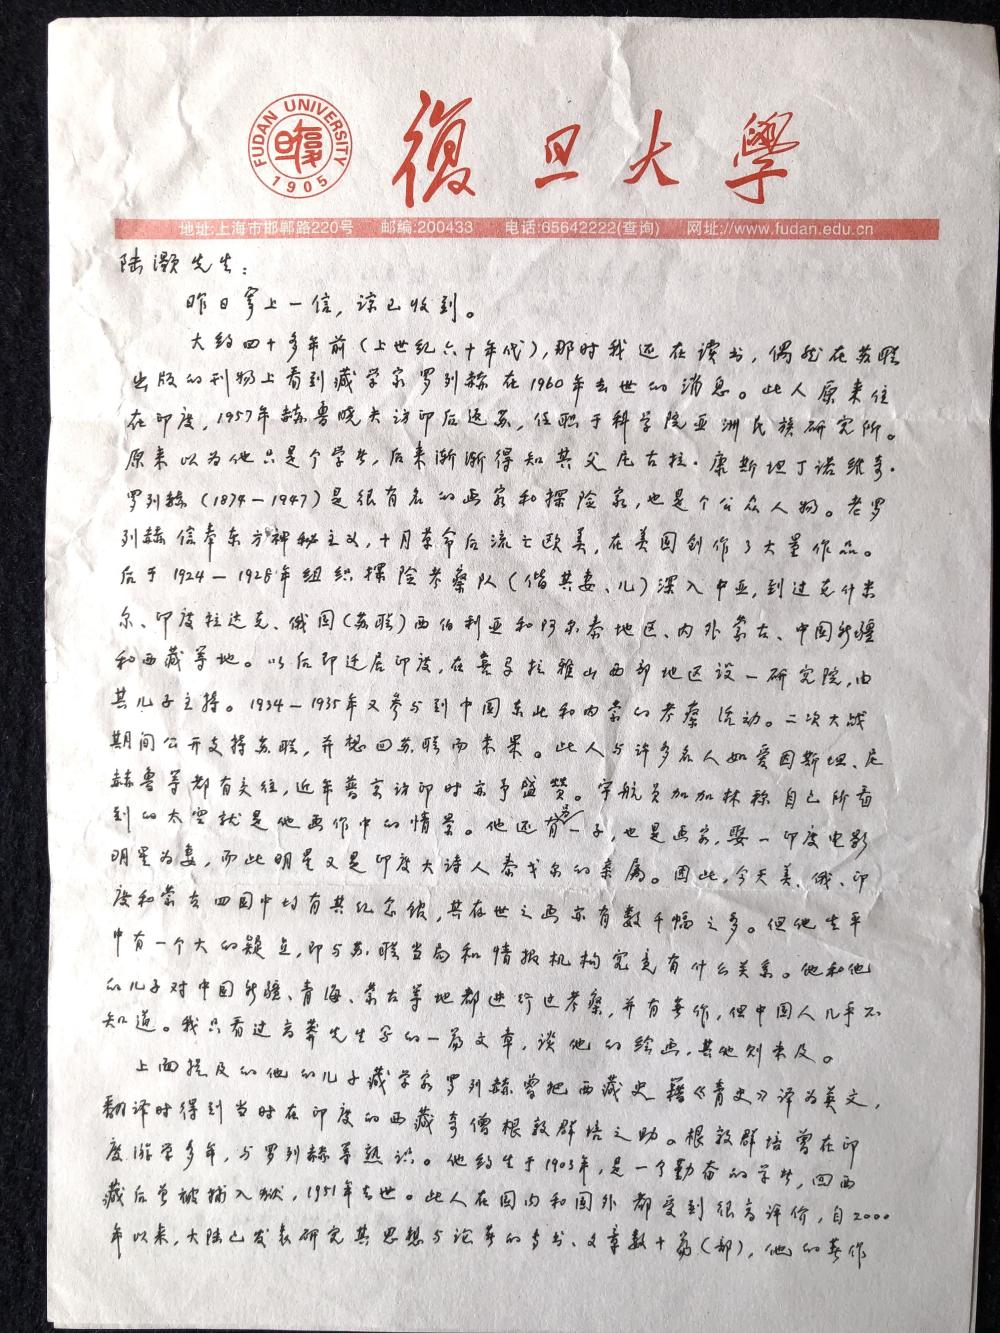 FUDAN UNIVERSITY
1905
復旦大學
地址:上海市邯郸路220号 邮编:200433 电话:65642222(查询) 网址://www.fudan.edu.cn
陆灏先生:
昨日寄上一信,谅已收到。
大约四十多年前(上世纪六十年代),那时我还在读书,偶然在苏联
出版的刊物上看到藏学家罗列赫在1960年去世的消息。此人原来住
在印度,1957年赫鲁晓夫访印后返苏,任职于科学院亚洲民族研究所。
原来以为他只是个学者,后来渐渐得知其父尼古拉·康斯坦丁诺维奇·
罗列赫(1874—1947)是很有名的画家和探险家,也是个公众人物。老罗
列赫信奉东方神秘主义,十月革命后流亡欧美,在美国创作了大量作品。
后于1924—1928年组织探险考察队(偕其妻、儿)深入中亚,到过克什米
尔、印度拉达克、俄国(苏联)西伯利亚和阿尔泰地区、内外蒙古、中国新疆
和西藏等地。以后即迁居印度,在喜马拉雅山西部地区设一研究院,由
其儿子主持。1934—1935年又参与到中国东北和内蒙的考察活动。二次大战
期间公开支持苏联,并想回苏联而未果。此人与许多名人如爱因斯坦、尼
赫鲁等都有交往,近年普京访印时亦予盛赞。宇航员加加林称自己所看
到的太空就是他画作中的情景。他还有另一子,也是画家,娶一印度电影
明星为妻,而此明星又是印度大诗人泰戈尔的亲属。因此,今天美、俄、印
度和蒙古四国中均有其纪念馆,其存世之画亦有数千幅之多。但他生平
中有一个大的疑点,即与苏联当局和情报机构究竟有什么关系。他和他
的儿子对中国新疆、青海、蒙古等地都进行过考察,并有著作,但中国人几乎不
知道。我只看过高莽先生写的一篇文章,谈他的绘画,其他则未及。
上面提及的他的儿子藏学家罗列赫曾把西藏史籍《青史》译为英文,
翻译时得到当时在印度的西藏奇僧根敦群培之助。根敦群培曾在印
度游学多年,与罗列赫等熟识。他约生于1903年,是一个勤奋的学者,回西
藏后曾被捕入狱,1951年去世。此人在国内和国外都受到很高评价,自2000
年以来,大陆已发表研究其思想与论著的专书、文章数十篇(部),他的著作